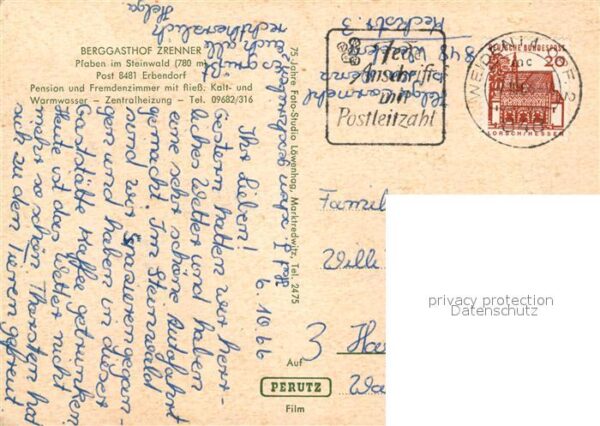 BERGGASTHOF ZRENNER
Pfaben im Steinwald (780 m)
Post 8481 Erbendorf
Pension und Fremdenzimmer mit fließ. Kalt- und
Warmwasser – Zentralheizung – Tel. 09682/316
75 Jahre Foto-Studio Löwenhag, Marktredwitz, Tel. 2475
6.10.66
Ihr Lieben!
Gestern hatten wir herr-
liches Wetter und haben
eine sehr schöne Autofahrt
gemacht. Im Steinwald
sind wir spazierengegan-
gen und haben in dieser
Gaststätte Kaffee getrunken.
Heute ist das Wetter nicht
mehr so schön. Thorsten hat
sich zu den Tieren gefreut
grüßt
Euch alle
recht herzlich
Helga
848 Weiden
Jede
Anschrift
mit
Postleitzahl
WEIDEN i.d. OPF 2
DEUTSCHE BUNDESPOST
20
LORSCH/HESSEN
Famil
Willi
3 Ha
Auf
PERUTZ
Film
privacy protection
Datenschutz